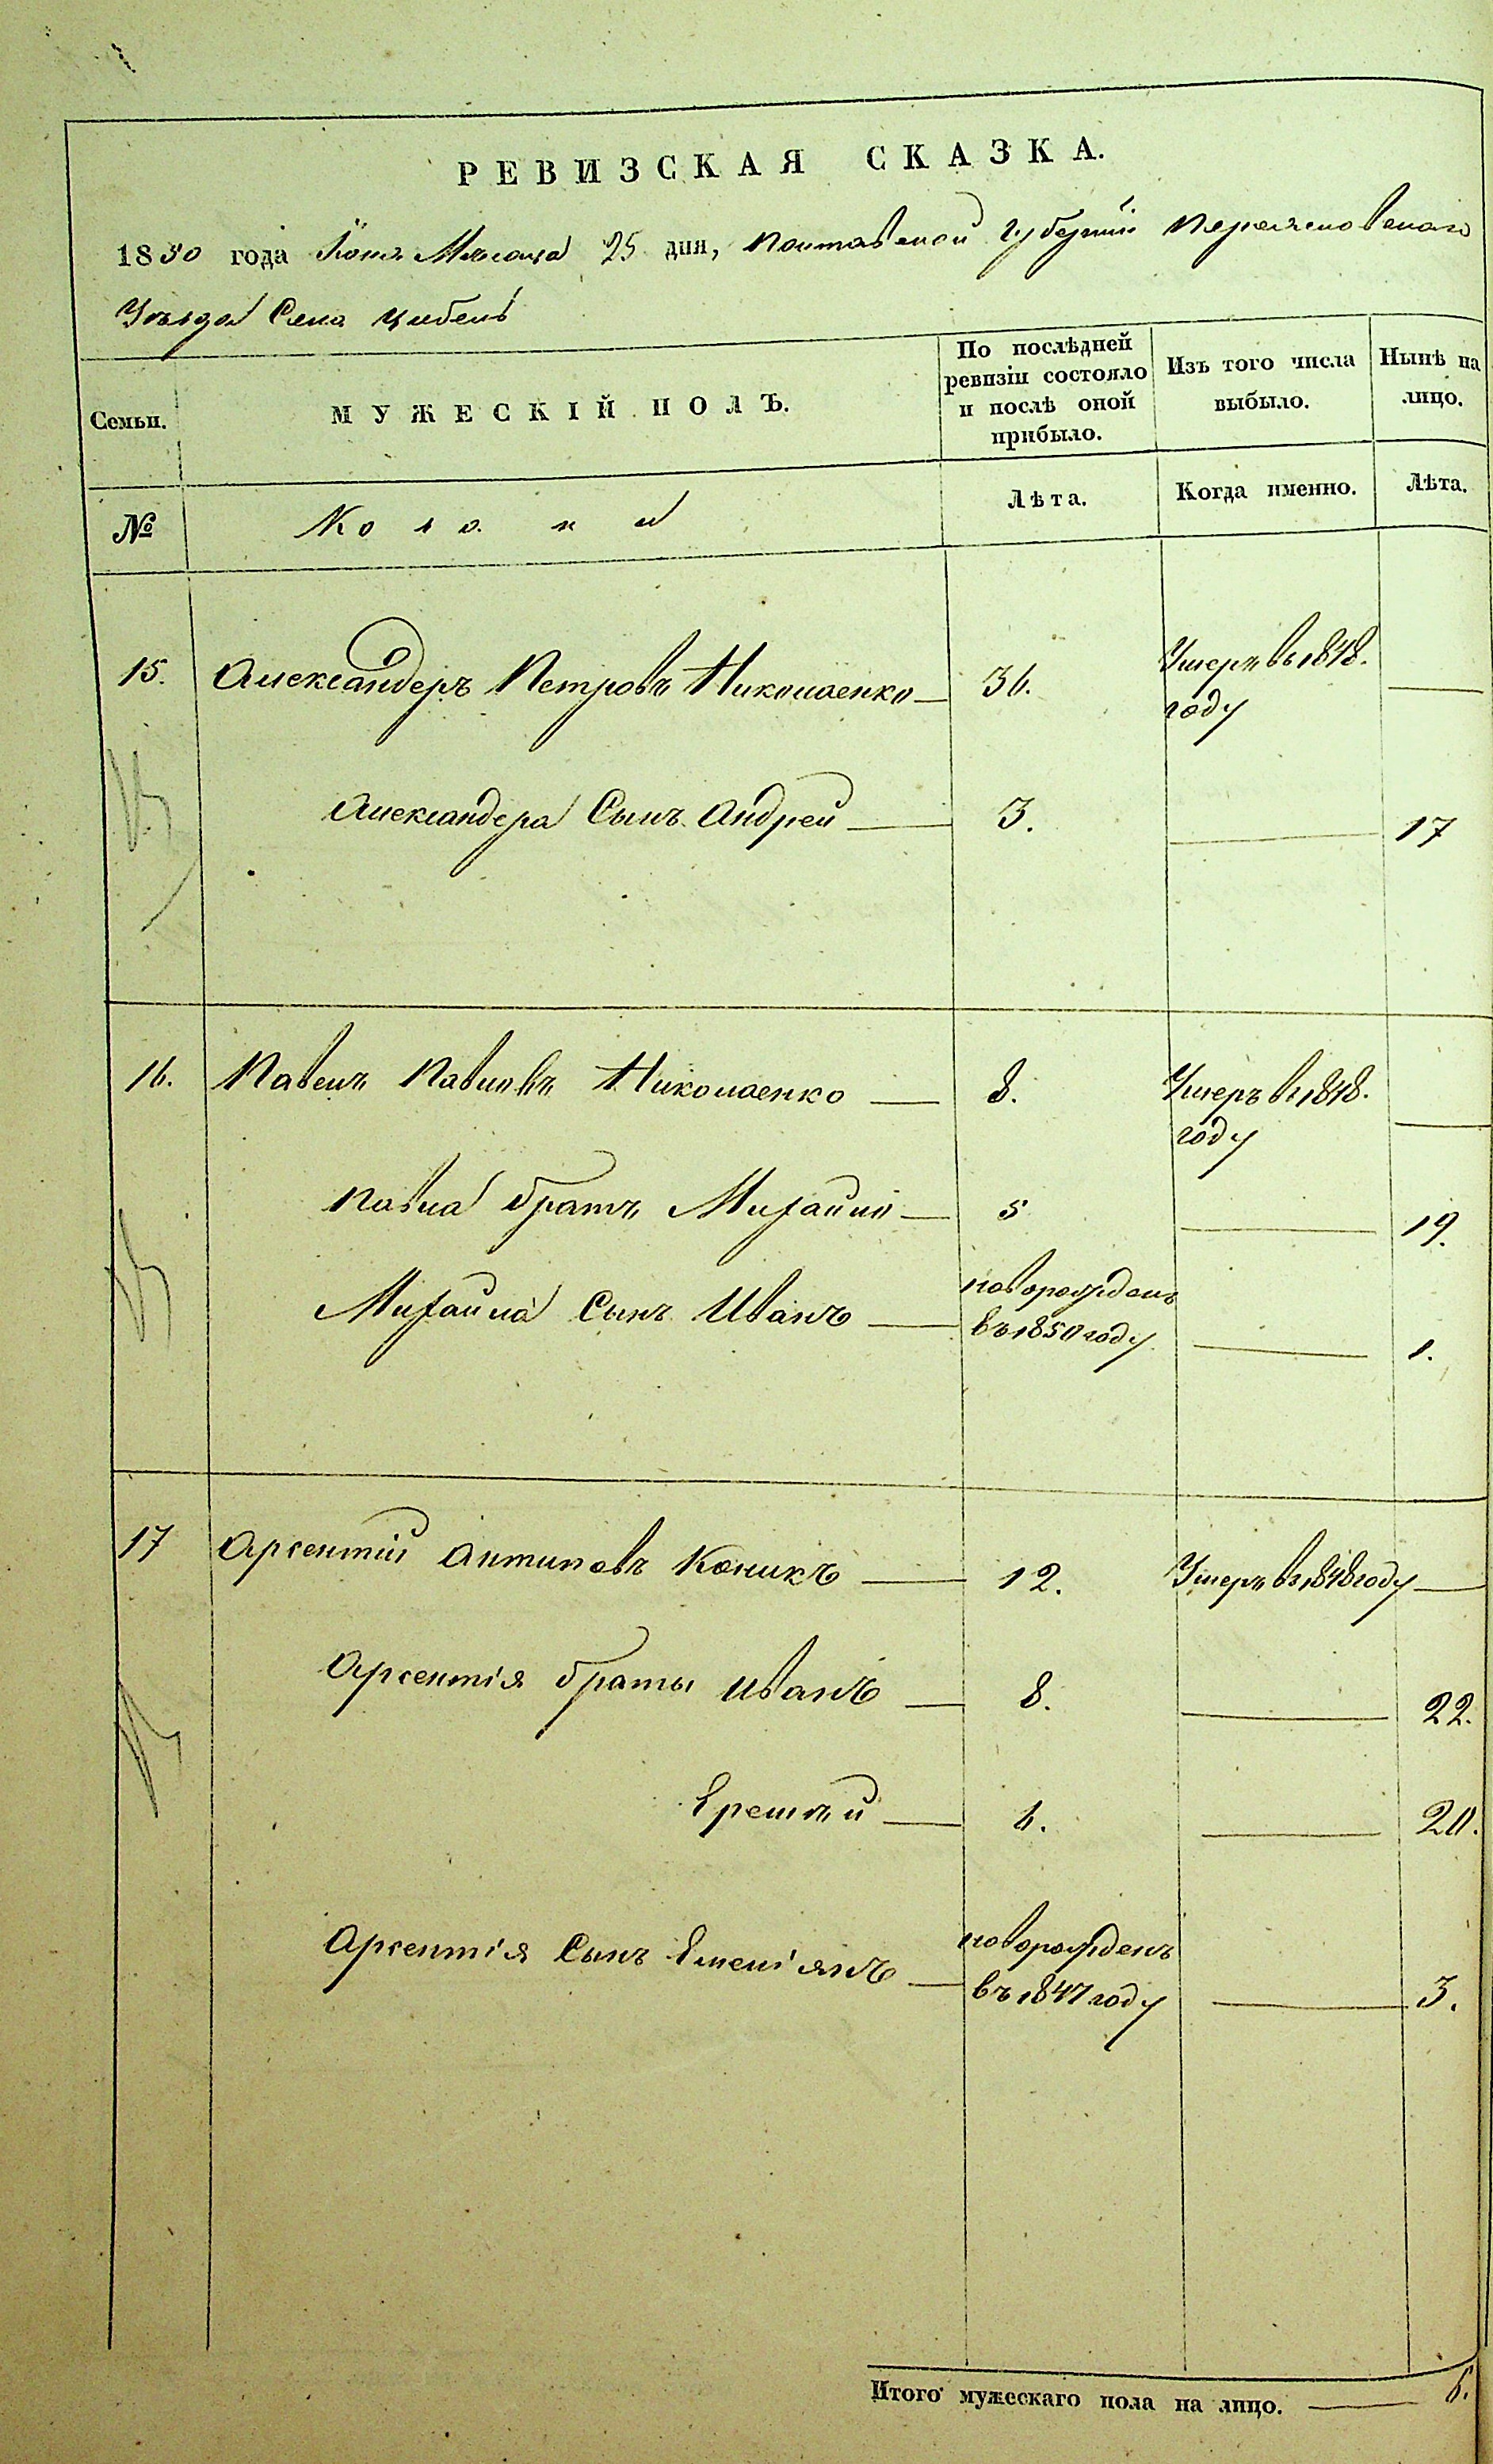 РЕВИЗСКАЯ СКАЗКА.
1850 года Іюня Мѣсяца 25 дня, Полтавской Губерніи Переяславскаго
Уѣзда Села Цибель
Семьи.
МУЖЕСКІЙ ПОЛЪ.
По послѣдней
ревизіи состояло
и послѣ оной
прибыло.
Изъ того числа
выбыло.
Нынѣ на
лицо.
№
Лѣта.
Когда именно.
Лѣта.
15. Александеръ Петровъ Николаенко — 36. Умеръ въ 1848.
году
Александера Сынъ Андрей — 3. — 17
16. Павелъ Павловъ Николаенко — 8. Умеръ въ 1848.
году
Павла братъ Михайло — 5 — 19.
Михайла Сынъ Иванъ — новорожденъ
въ 1850 году — 1.
17 Арсентій Антиповъ Коникъ — 12. Умеръ въ 1848 году —
Арсентія браты Иванъ — 8. — 22.
Еремѣй — 6. — 20.
Арсентія Сынъ Емеліянъ — новорожденъ
въ 1847 году — 3.
Итого мужескаго пола на лицо. — 6.